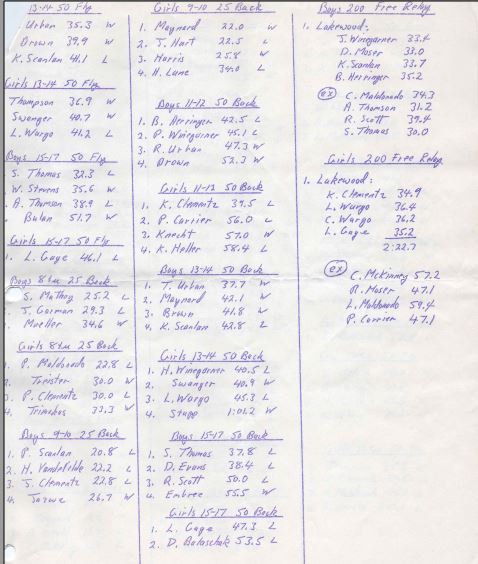 13-14 50 Fly
Urban 35.3 W
Brown 39.9 W
K. Scanlan 41.1 L
Girls 13-14 50 Fly
Thompson 36.9 W
Swanger 40.7 W
L. Wargo 41.2 L
Boys 15-17 50 Fly
S. Thomas 32.3 L
W. Stevens 35.6 W
A. Thomson 38.9 L
Bulan 51.7 W
Girls 15-17 50 Fly
1. L. Gage 46.1 L
Boys 8+u 25 Back
S. Mathey 25.2 L
J. Gorman 29.3 L
Moeller 34.6 W
Girls 8+u 25 Back
1. P. Maldonado 22.8 L
2. Treister 30.0 W
3. P. Clementz 30.0 L
4. 33.3 W
Boys 9-10 25 Back
1. P. Scanlan 20.8 L
2. H. 22.2 L
3. J. Clementz 22.8 L
4. 26.7 W
Girls 9-10 25 Back
1. Maynard 22.0 W
2. J. Hart 22.5 L
3. Harris 25.8 W
4. H. Lane 34.0 L
Boys 11-12 50 Back
1. B. Herringer 42.5 L
2. P. Winegarner 45.1 L
3. R. Urban 47.3 W
4. Brown 52.3 W
Girls 11-12 50 Back
1. K. Clementz 39.5 L
2. P. Carrier 56.0 L
3. Knecht 57.0 W
4. K. Heller 58.4 L
Boys 13-14 50 Back
1. T. Urban 37.7 W
2. Maynard 42.1 W
3. Brown 41.8 W
4. K. Scanlan 42.8 L
Girls 13-14 50 Back
1. H. Winegarner 40.5 L
2. Swanger 40.9 W
3. L. Wargo 45.3 L
4. Stupp 1:01.2 W
Boys 15-17 50 Back
1. S. Thomas 37.8 L
2. D. Evans 38.4 L
3. R. Scott 50.0 L
4. Embree 55.5 W
Girls 15-17 50 Back
1. L. Gage 47.3 L
2. D. Balaschak 53.5 L
Boys 200 Free Relay
1. Lakewood:
J. Winegarner 33.4
D. Moser 33.0
K. Scanlan 33.7
B. Herringer 35.2
ex C. Maldonado 34.3
A. Thomson 31.2
R. Scott 39.4
S. Thomas 30.0
Girls 200 Free Relay
1. Lakewood:
K. Clementz 34.9
L. Wargo 36.4
C. Wargo 36.2
L. Gage 35.2
2:22.7
ex C. McKinney 57.2
R. Moser 47.1
L. Maldonado 59.4
P. Carrier 47.1